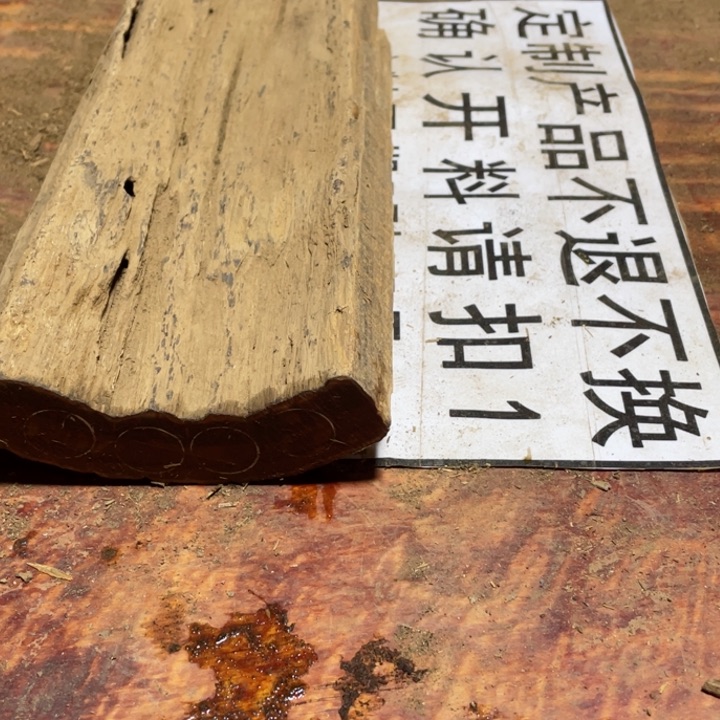 定制产品不退不换
确认开料请扣1